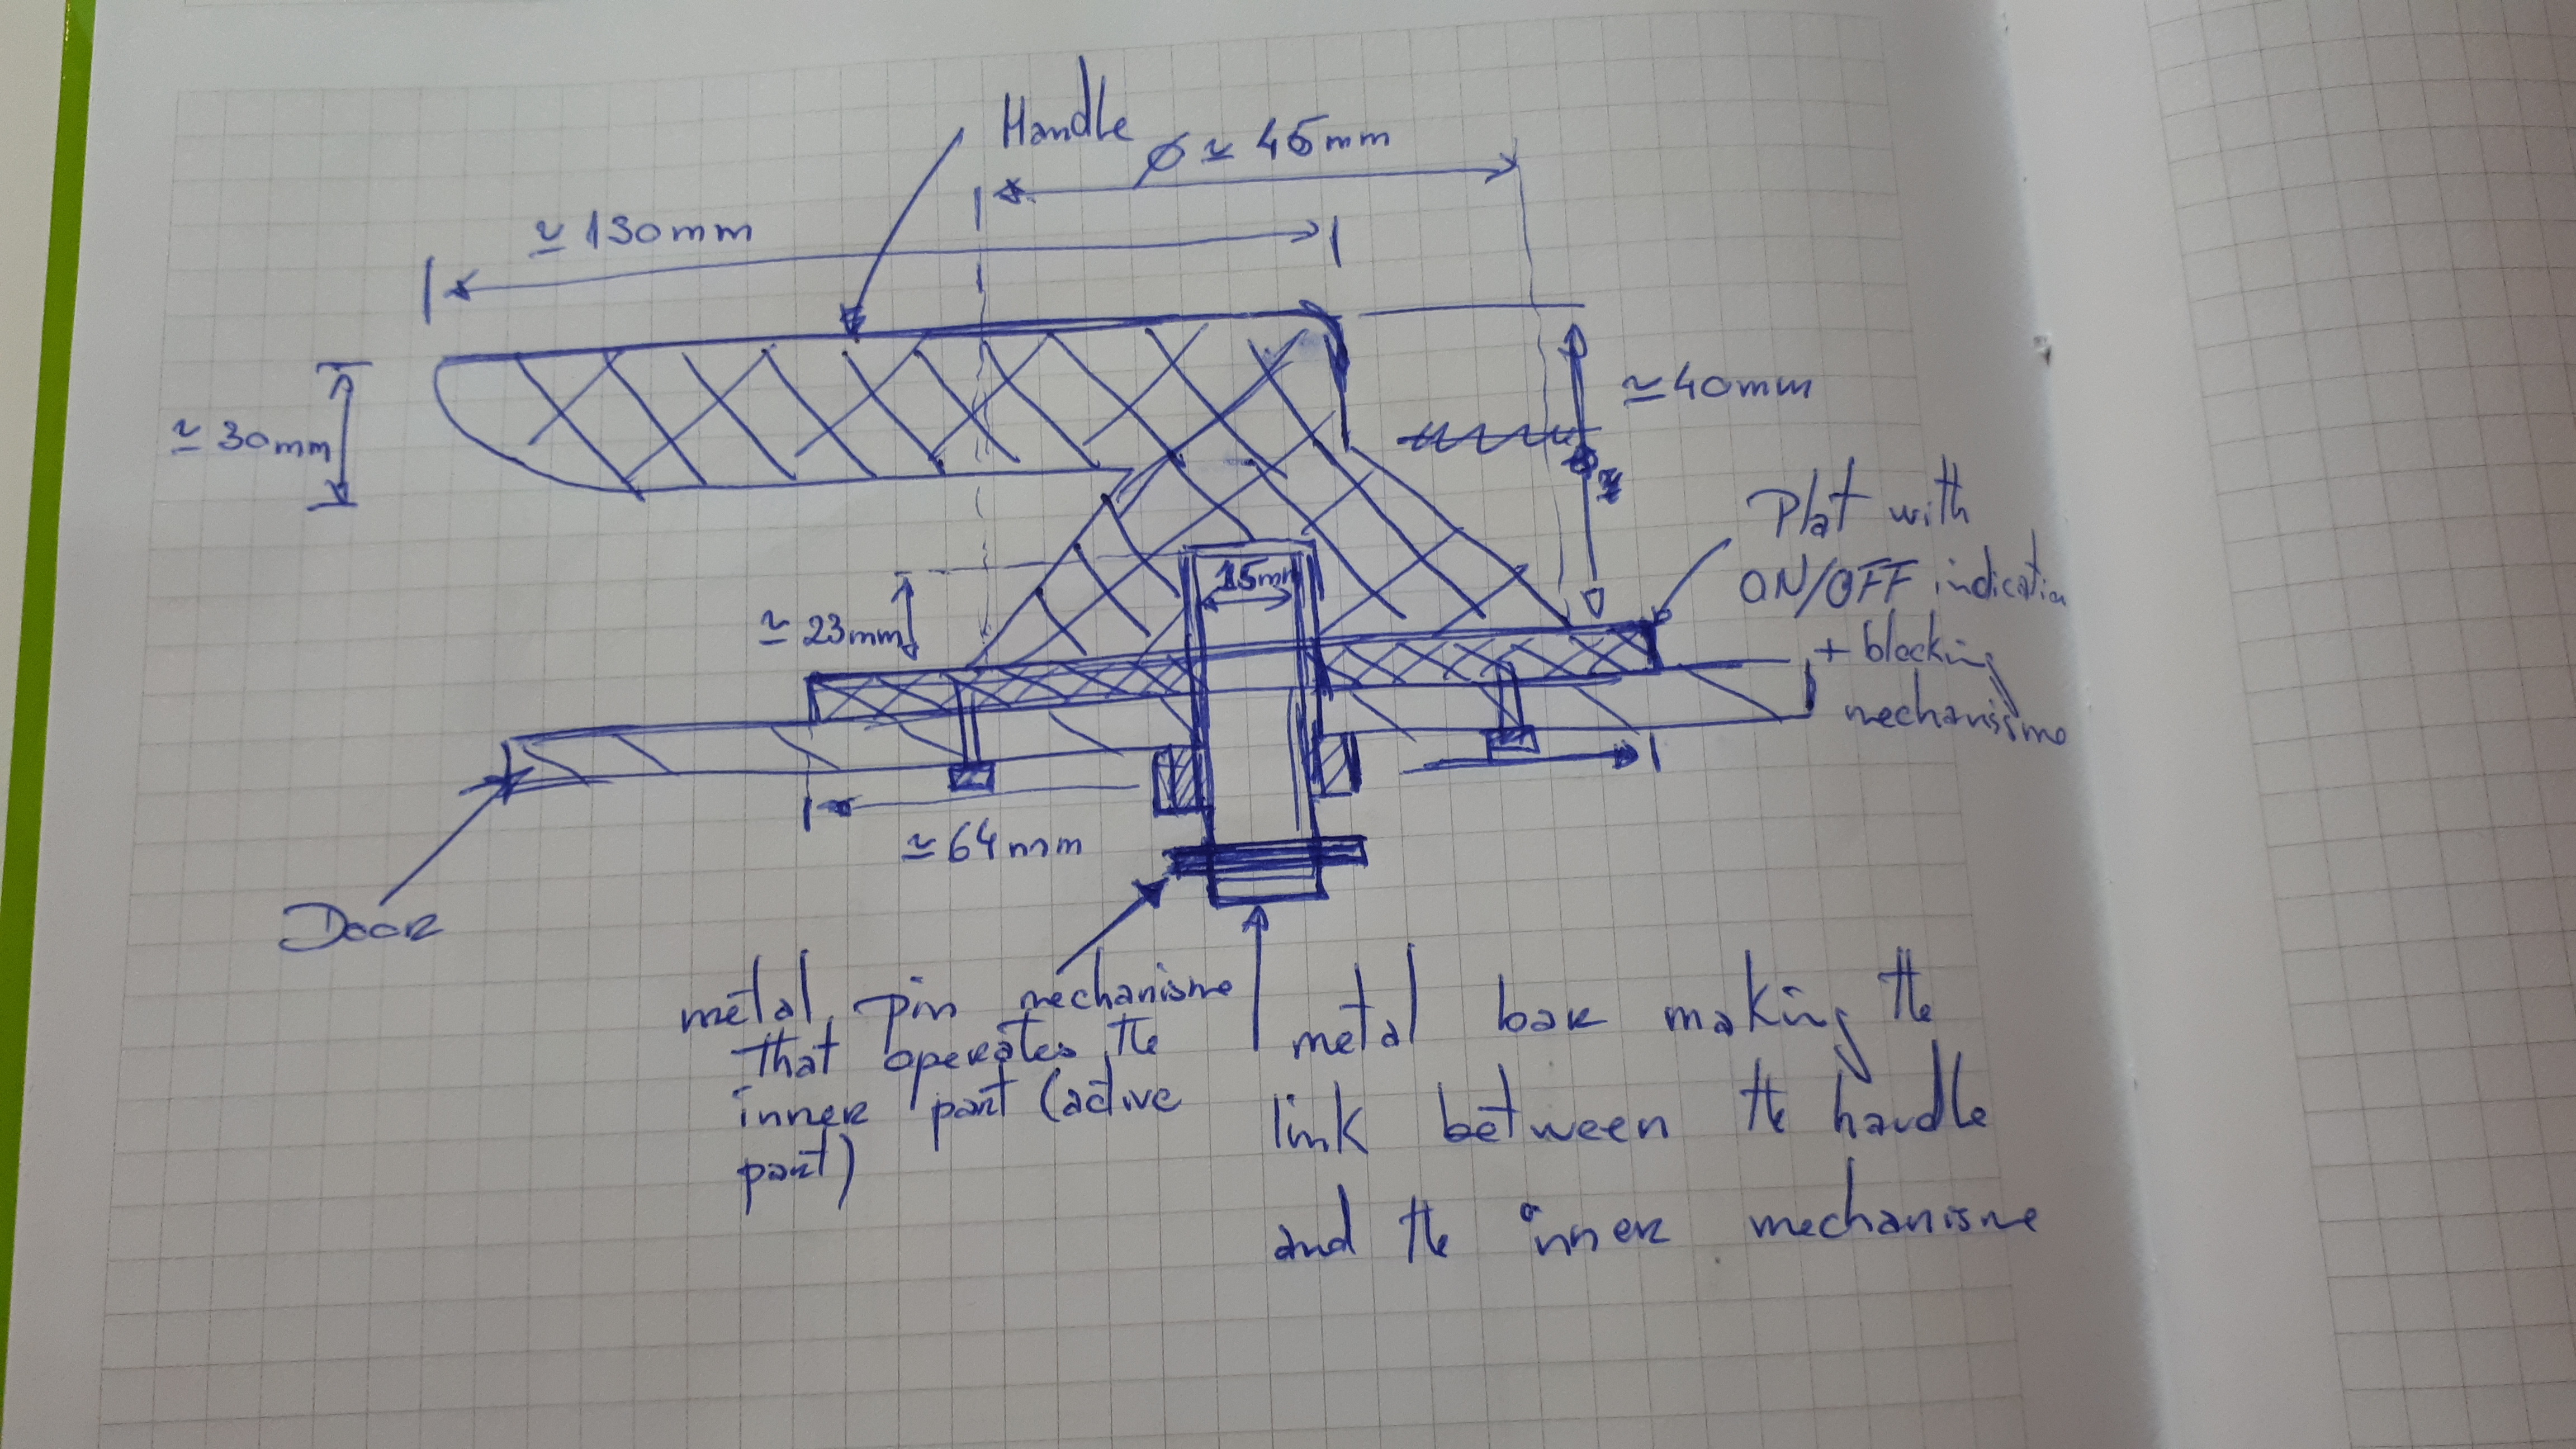 Handle
⌀ ≃ 45mm
≃ 130mm
≃ 40mm
≃ 30mm
Plat with
ON/OFF indication
+ blocking
mechanisme
15mm
≃ 23mm
≃ 64mm
Door
metal pin mechanisme
that operates the
inner part (active
part)
metal bar making the
link between the handle
and the inner mechanisme